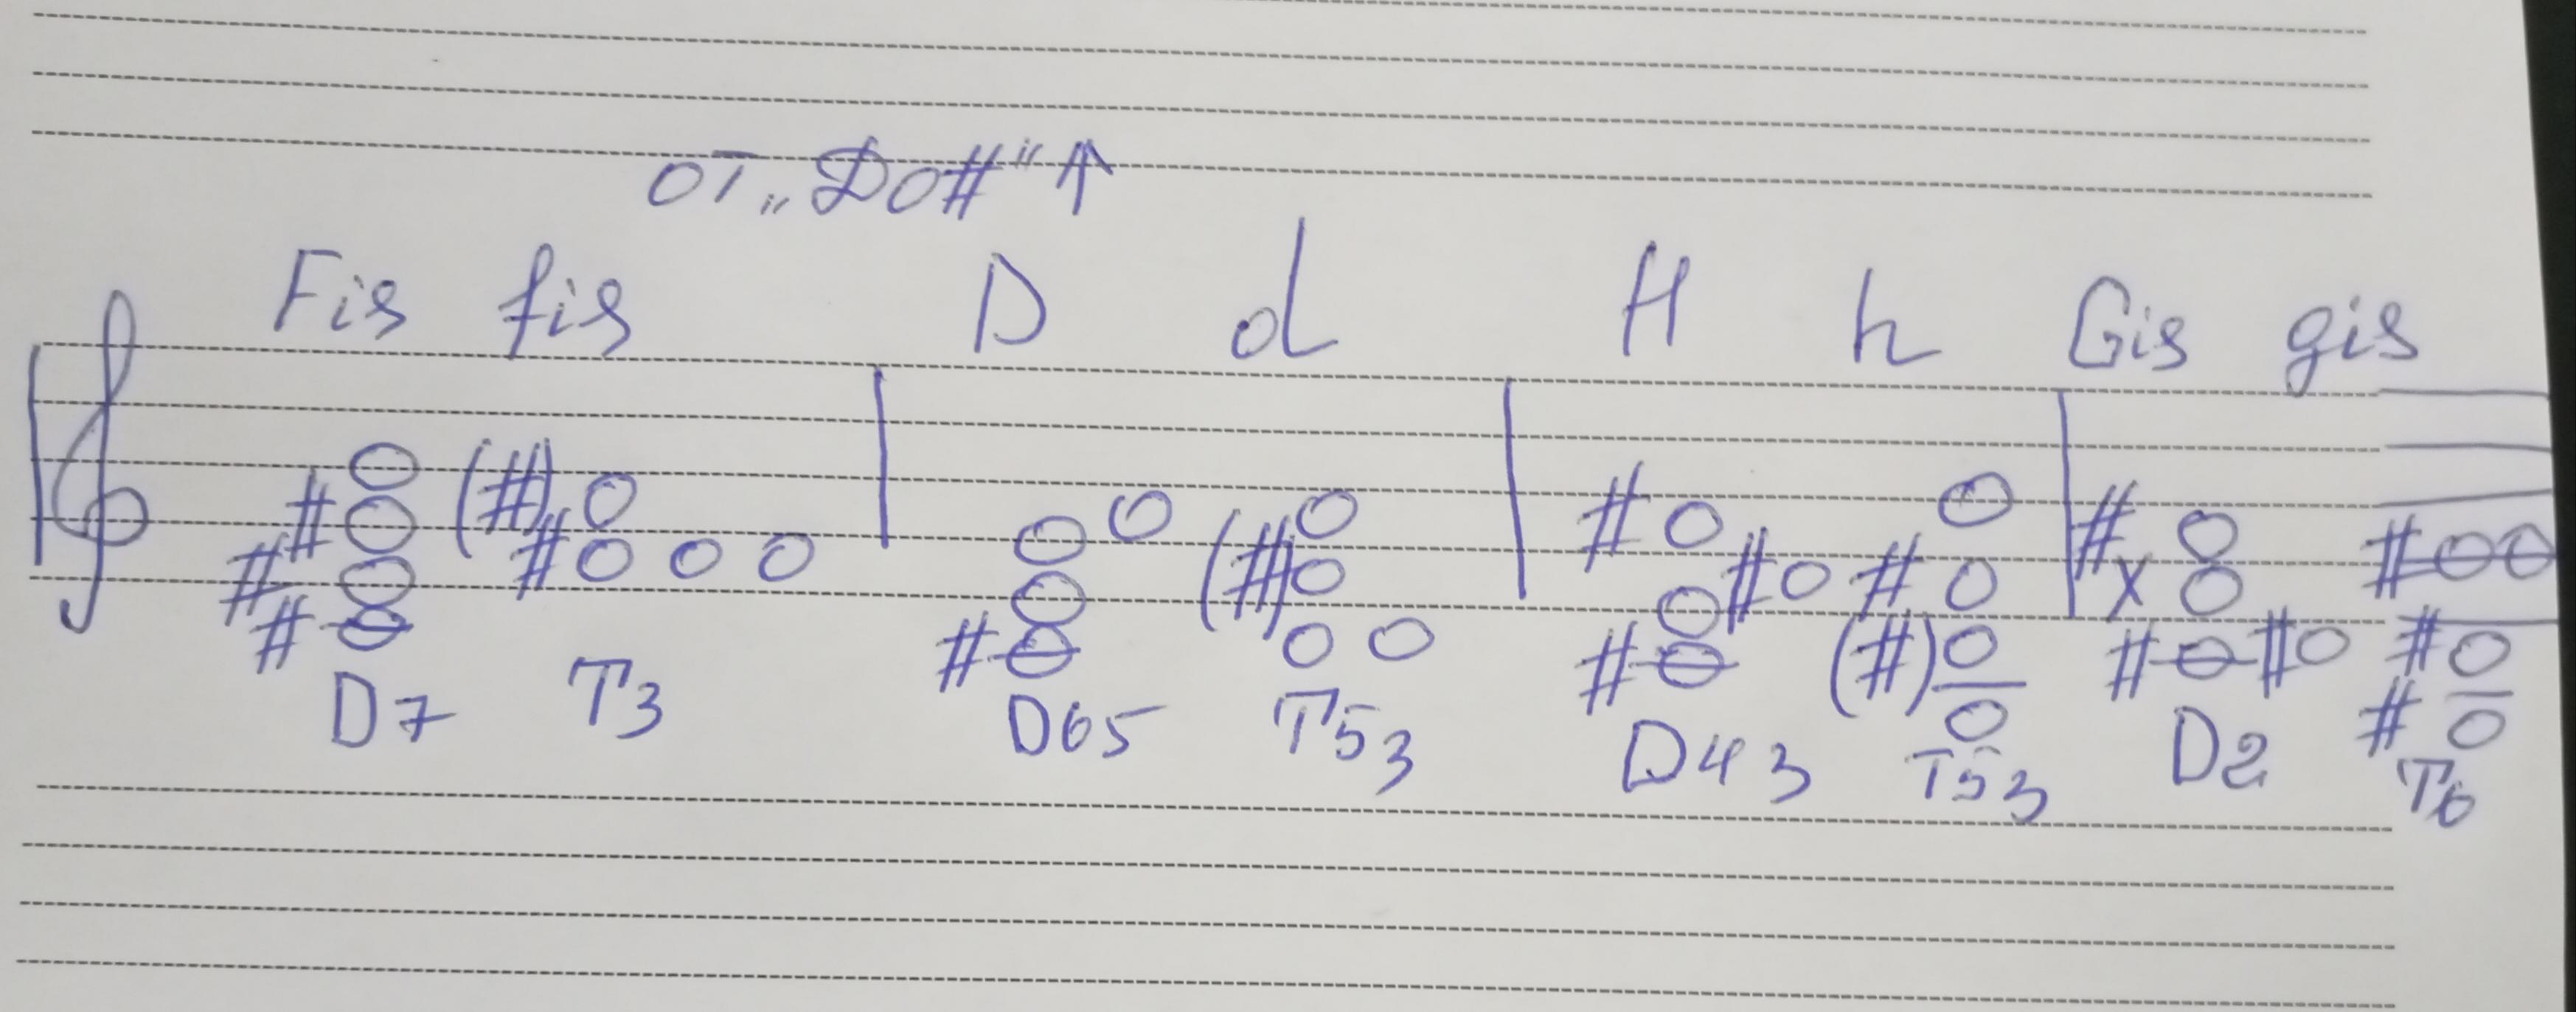 от „До#“ ↑
Fis fis D d H h Gis gis
D7 T3 D65 T53 D43 T53 D2 T6